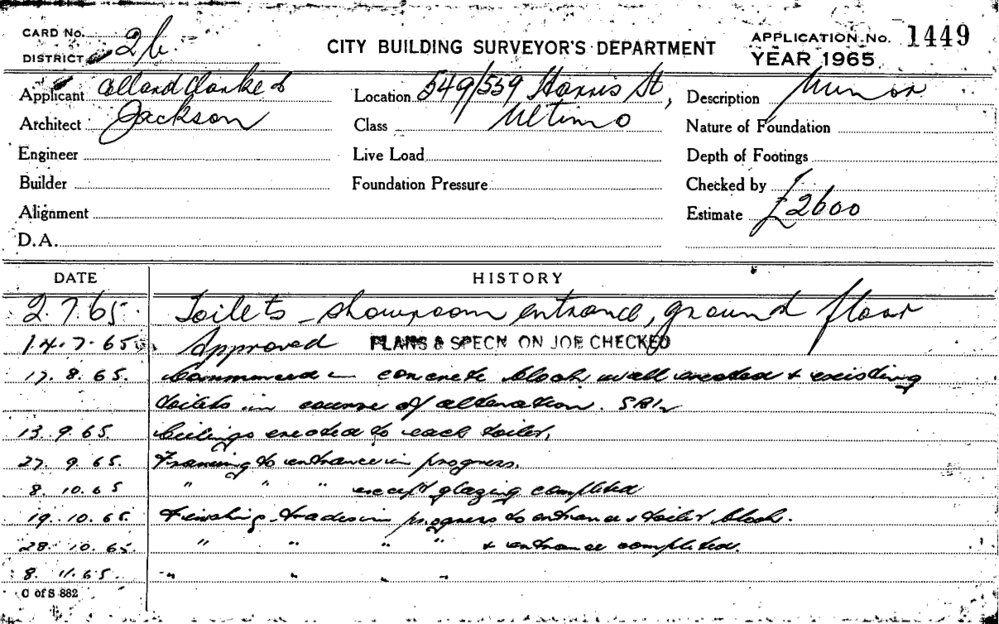 CARD No. 26.
DISTRICT
CITY BUILDING SURVEYOR'S DEPARTMENT
APPLICATION No. 1449
YEAR 1965
Applicant Clarke &
Architect Jackson
Engineer
Builder
Alignment
D.A.
Location 549/559 Harris St,
Class Ultimo
Live Load
Foundation Pressure
Description Minor
Nature of Foundation
Depth of Footings
Checked by
Estimate £2600
DATE HISTORY
2.7.65. Toilets - showroom entrance, ground floor
14.7.65 Approved PLANS & SPECN ON JOB CHECKED
17.8.65. Commenced - concrete block wall erected & existing
toilets in course of alteration.
13.9.65. Ceilings erected to each toilet.
27.9.65. Framing to entrance in progress.
8.10.65 " " " except glazing completed
19.10.65. Finishing trades in progress to entrance & toilet block.
28.10.65. " " " " & entrance completed.
8.11.65. " " " "
C of S 882